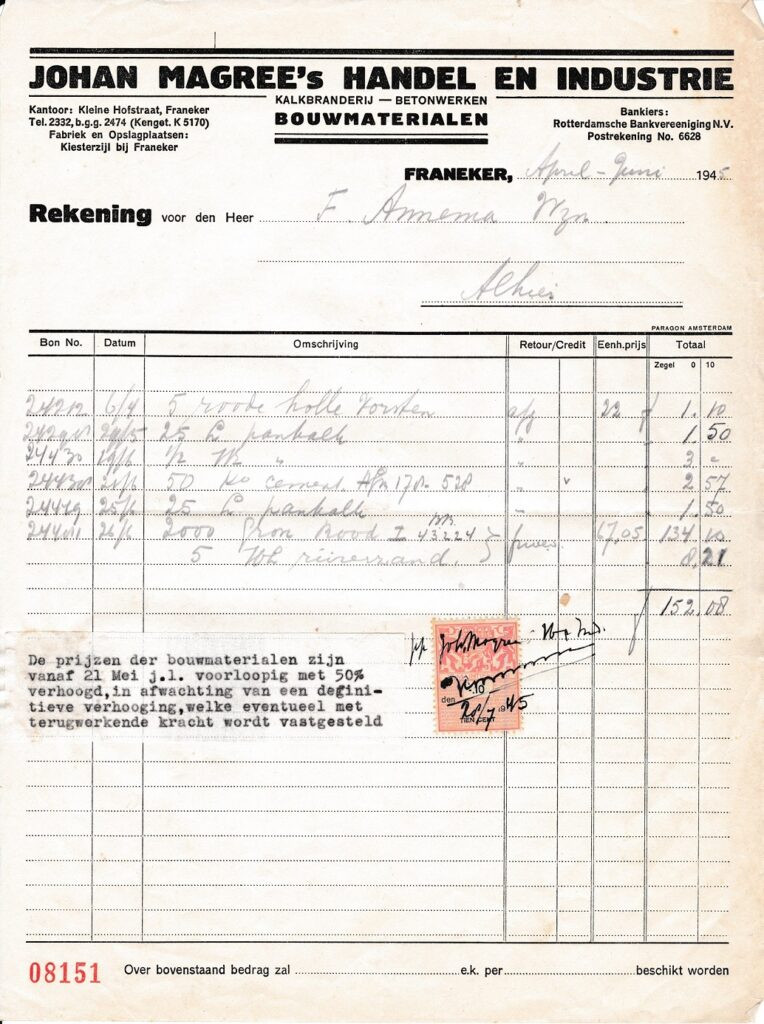 JOHAN MAGREE's HANDEL EN INDUSTRIE
KALKBRANDERIJ — BETONWERKEN
BOUWMATERIALEN
Kantoor: Kleine Hofstraat, Franeker
Tel. 2332, b.g.g. 2474 (Kenget. K 5170)
Fabriek en Opslagplaatsen:
Kiesterzijl bij Franeker
Bankiers:
Rotterdamsche Bankvereeniging N.V.
Postrekening No. 6628
FRANEKER, April - Juni 1945
Rekening voor den Heer F. Annema Wzn.
Alhier
PARAGON AMSTERDAM
Bon No. Datum Omschrijving Retour/Credit Eenh.prijs Totaal
Zegel 0 10
24212 6/4 5 roode holle vorsten afg 22 1.10
25 L pankalk " 1.50
24430 1/2 " " 3 -
50 Ko cement 2 57
24449 25/6 25 L pankalk 1.50
26/6 2000 Gron Rood I 43224 67,05 134 10
5 8,21
152,08
De prijzen der bouwmaterialen zijn
vanaf 21 Mei j.l. voorloopig met 50%
verhoogd,in afwachting van een defini-
tieve verhooging,welke eventueel met
terugwerkende kracht wordt vastgesteld
pp Joh. Magree
10
den 20/7 1945
TIEN CENT
08151 Over bovenstaand bedrag zal e.k. per beschikt worden